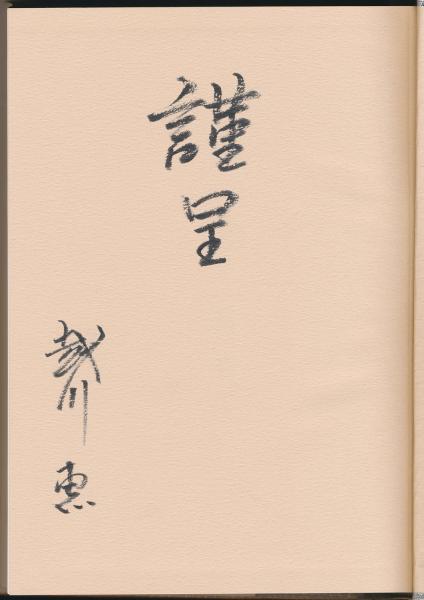 謹呈
越川 恵